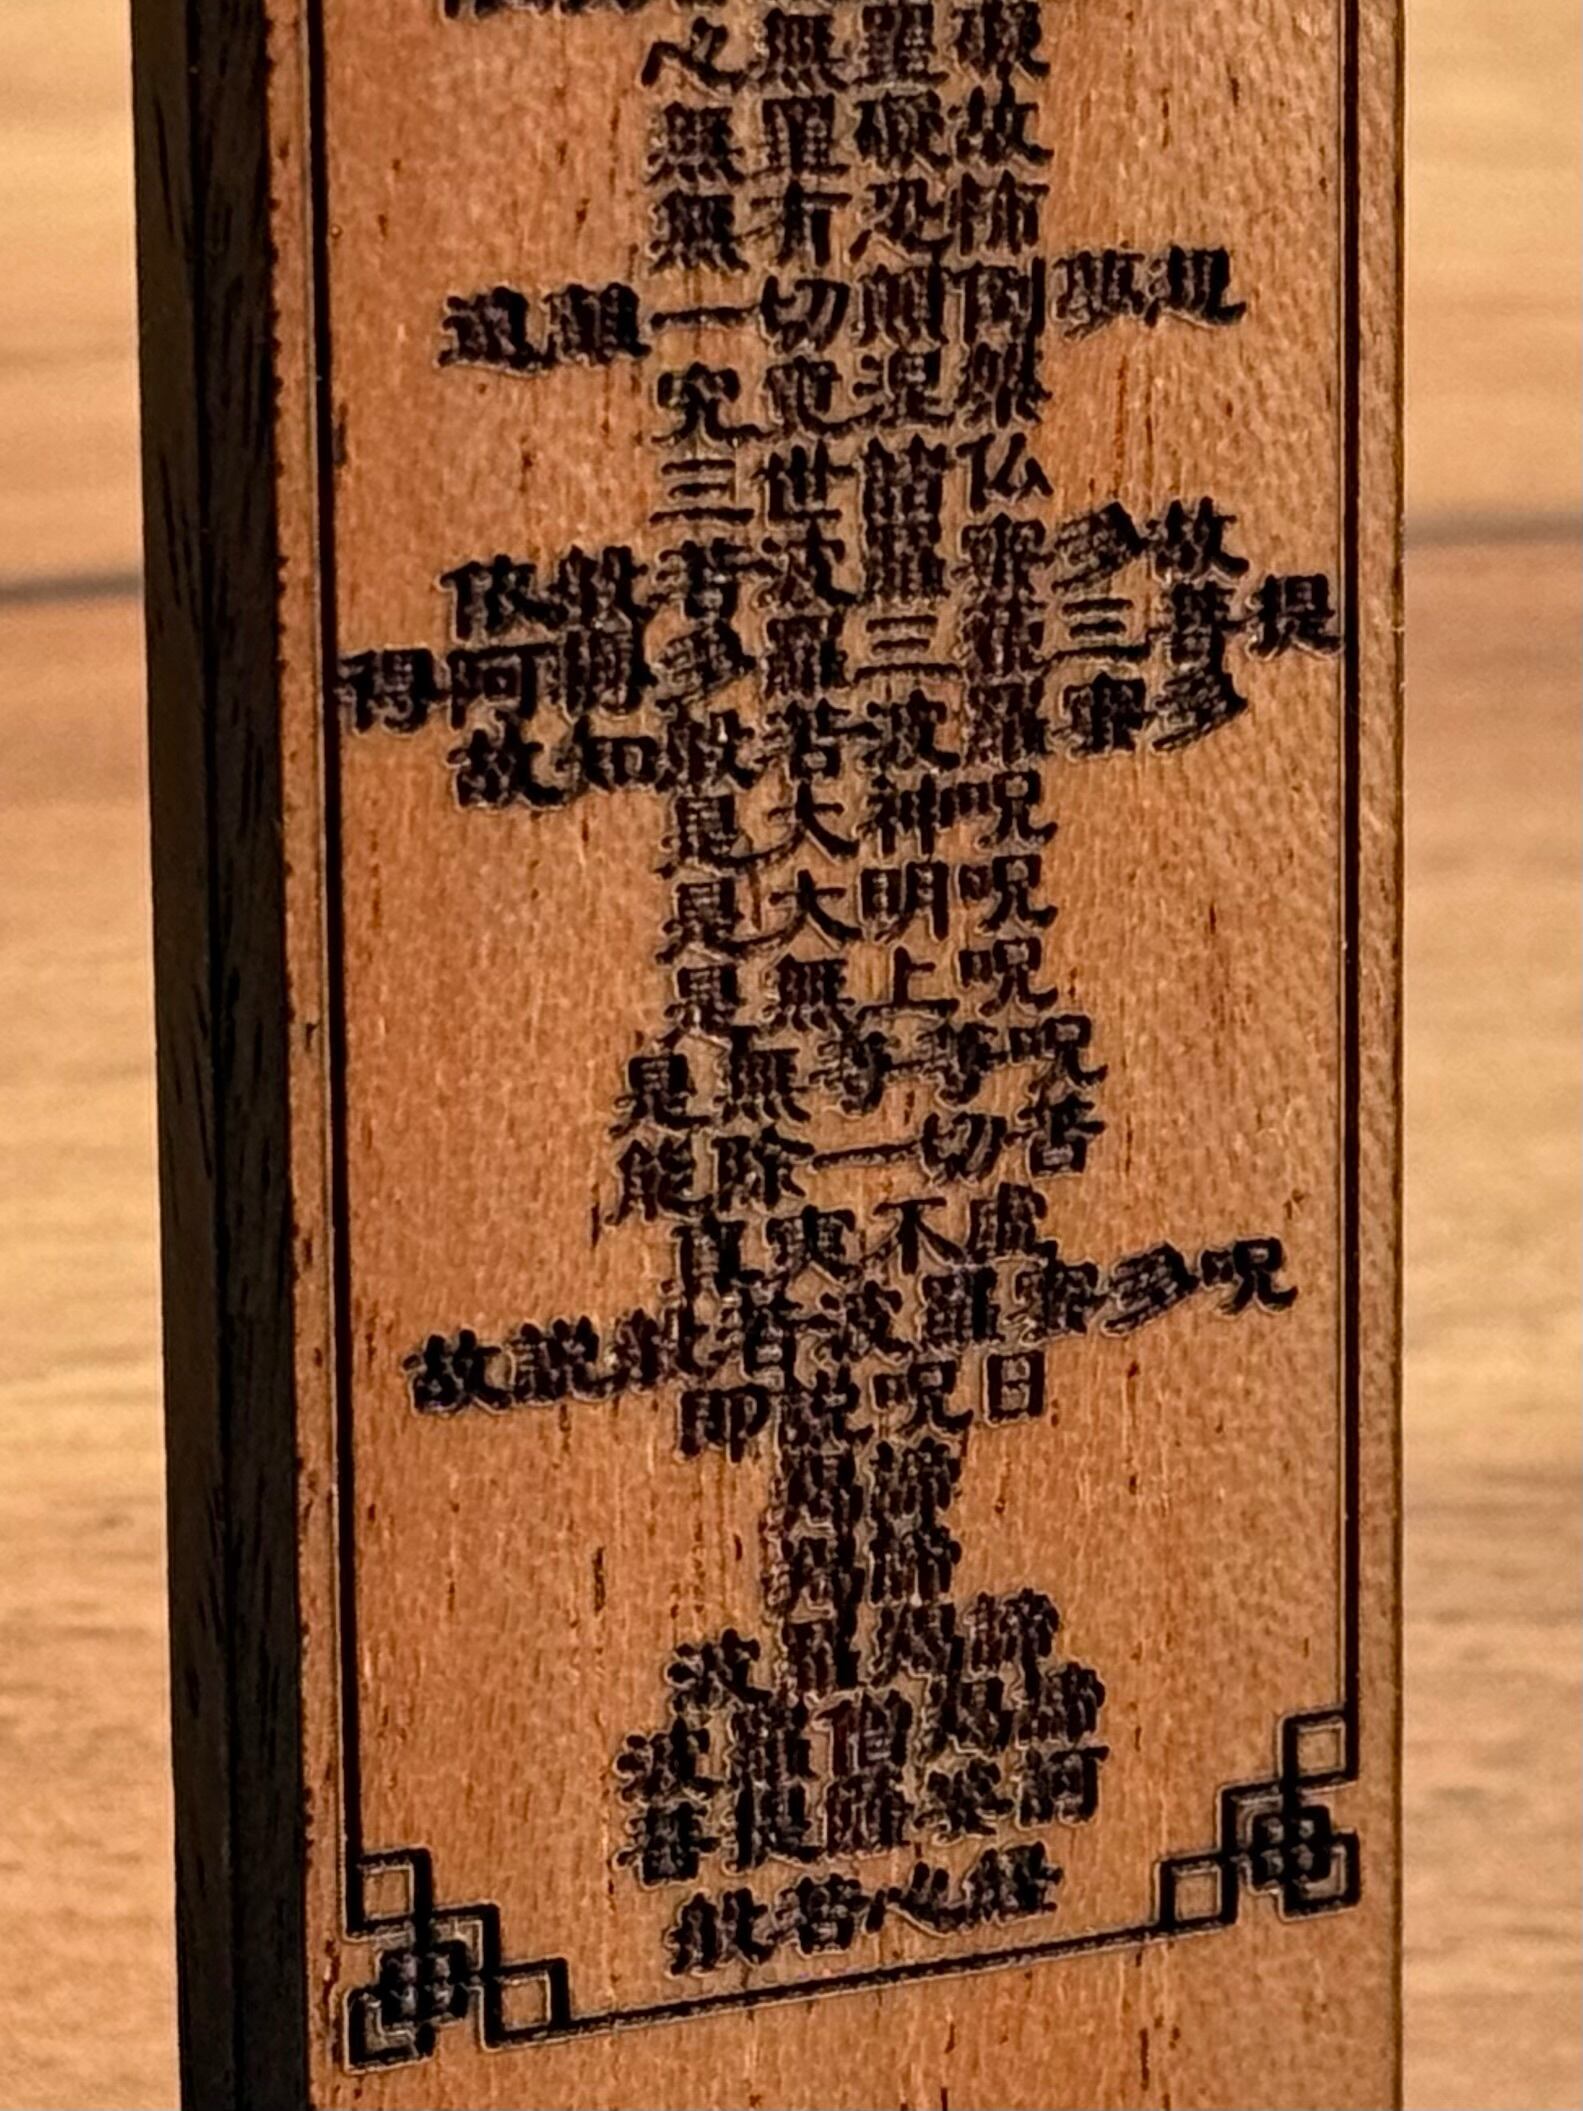 心無罣礙
無罣礙故
無有恐怖
遠離一切顛倒夢想
究竟涅槃
三世諸仏
依般若波羅蜜多故
得阿耨多羅三藐三菩提
故知般若波羅蜜多
是大神呪
是大明呪
是無上呪
是無等等呪
能除一切苦
真実不虚
故説般若波羅蜜多呪
即説呪曰
羯諦
羯諦
波羅羯諦
波羅僧羯諦
菩提薩婆訶
般若心経